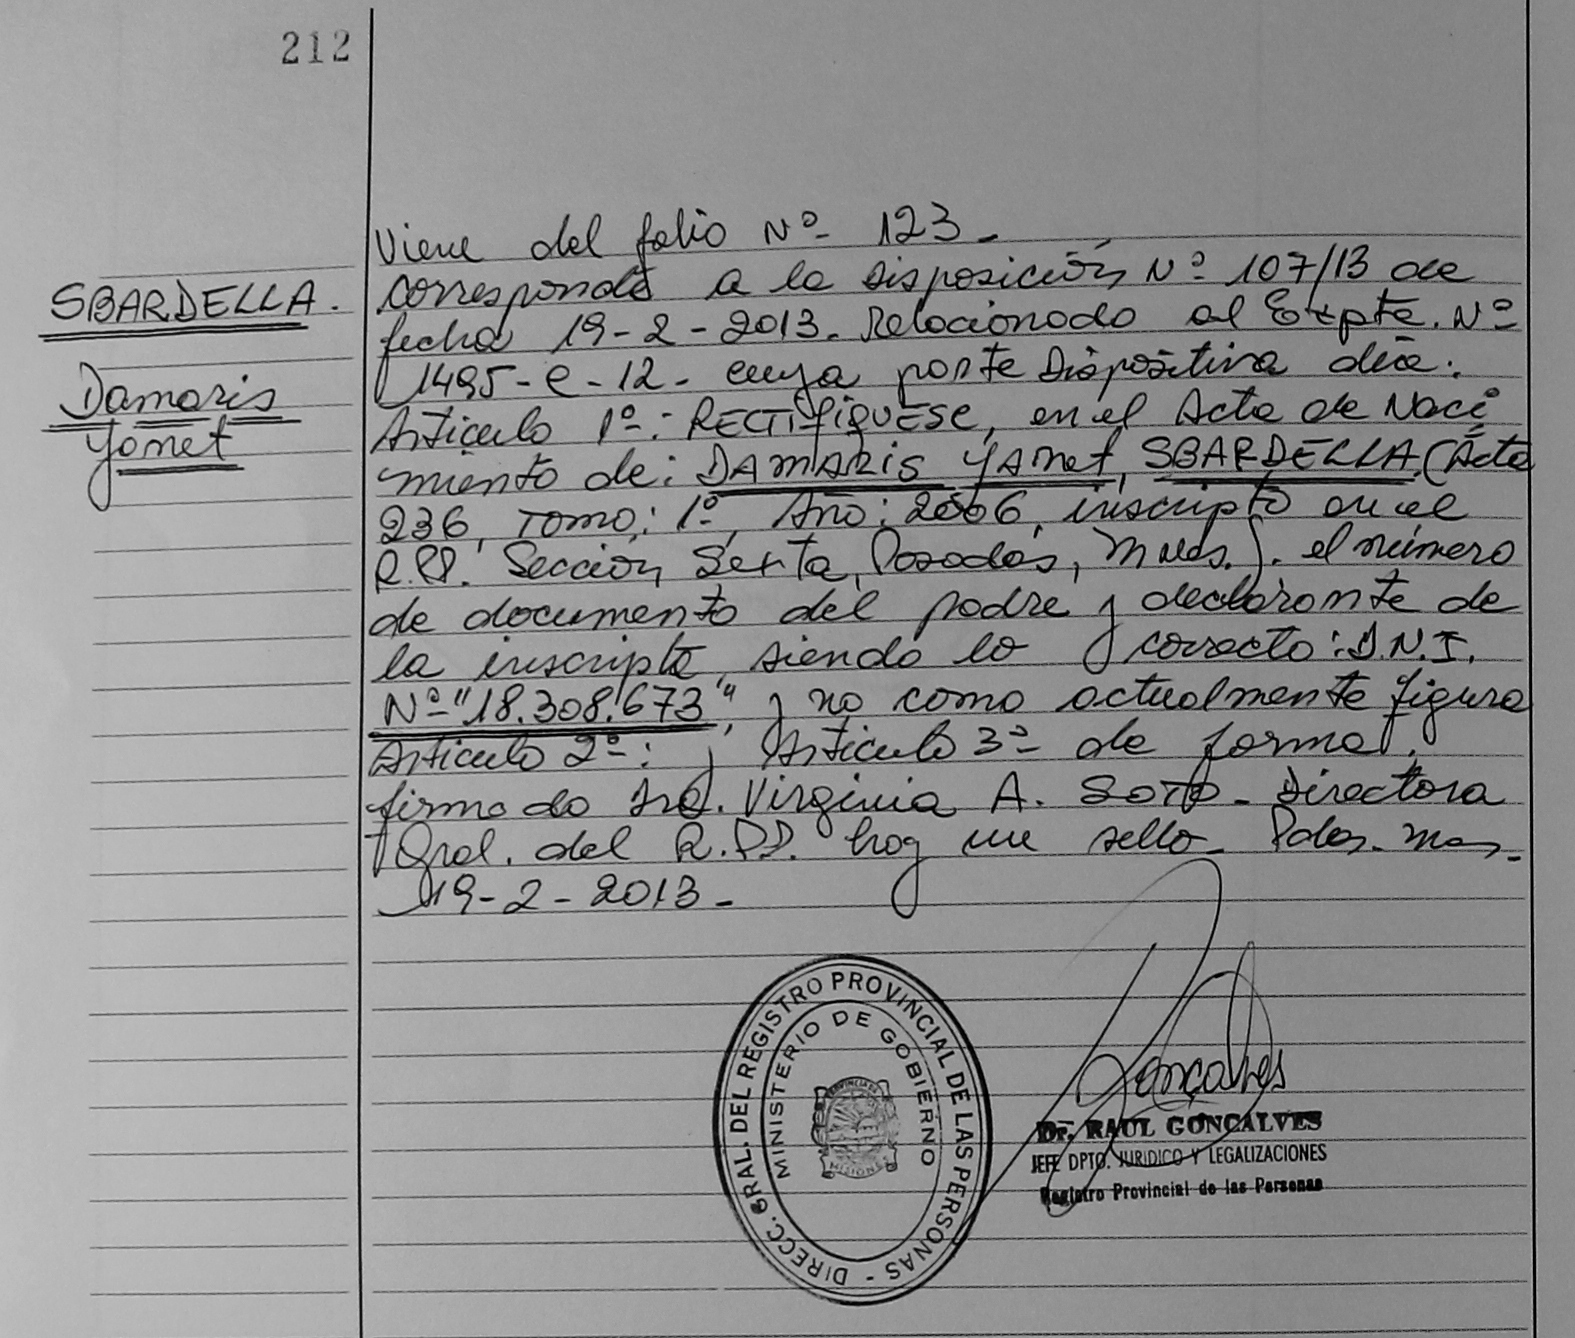 212
SBARDELLA.
Damaris
Yanet
Viene del folio Nº 123-
Corresponde a la Disposición Nº 107/13 de
fecha 19-2-2013. Relacionado al Expte. Nº
1495-e-12- cuya parte Dispositiva dice:
Articulo 1º: RECTIFIQUESE, en el Acta de Naci
miento de: DAMARIS YAnet, SBARDELLA (Acta
236, Tomo: 1º, Año: 2006, inscripta en el
R.PP. Sección Sexta, Posadas, Mnes.). el número
de documento del padre y declarante de
la inscripta, siendo lo correcto: D.N.I.
Nº "18.308.673", y no como actualmente figura
Articulo 2º: y Articulo 3º de forma.
firmado Dra. Virginia A. Soto- Directora
Gral. del R.PP. hay un sello- Pdas. Mnes.-
19-2-2013-
DIRECC. GRAL. DEL REGISTRO PROVINCIAL DE LAS PERSONAS -
MINISTERIO DE GOBIERNO
PROVINCIA DE
MISIONES
Goncalves
Dr. RAUL GONCALVES
JEFE DPTO. JURIDICO Y LEGALIZACIONES
Registro Provincial de las Personas